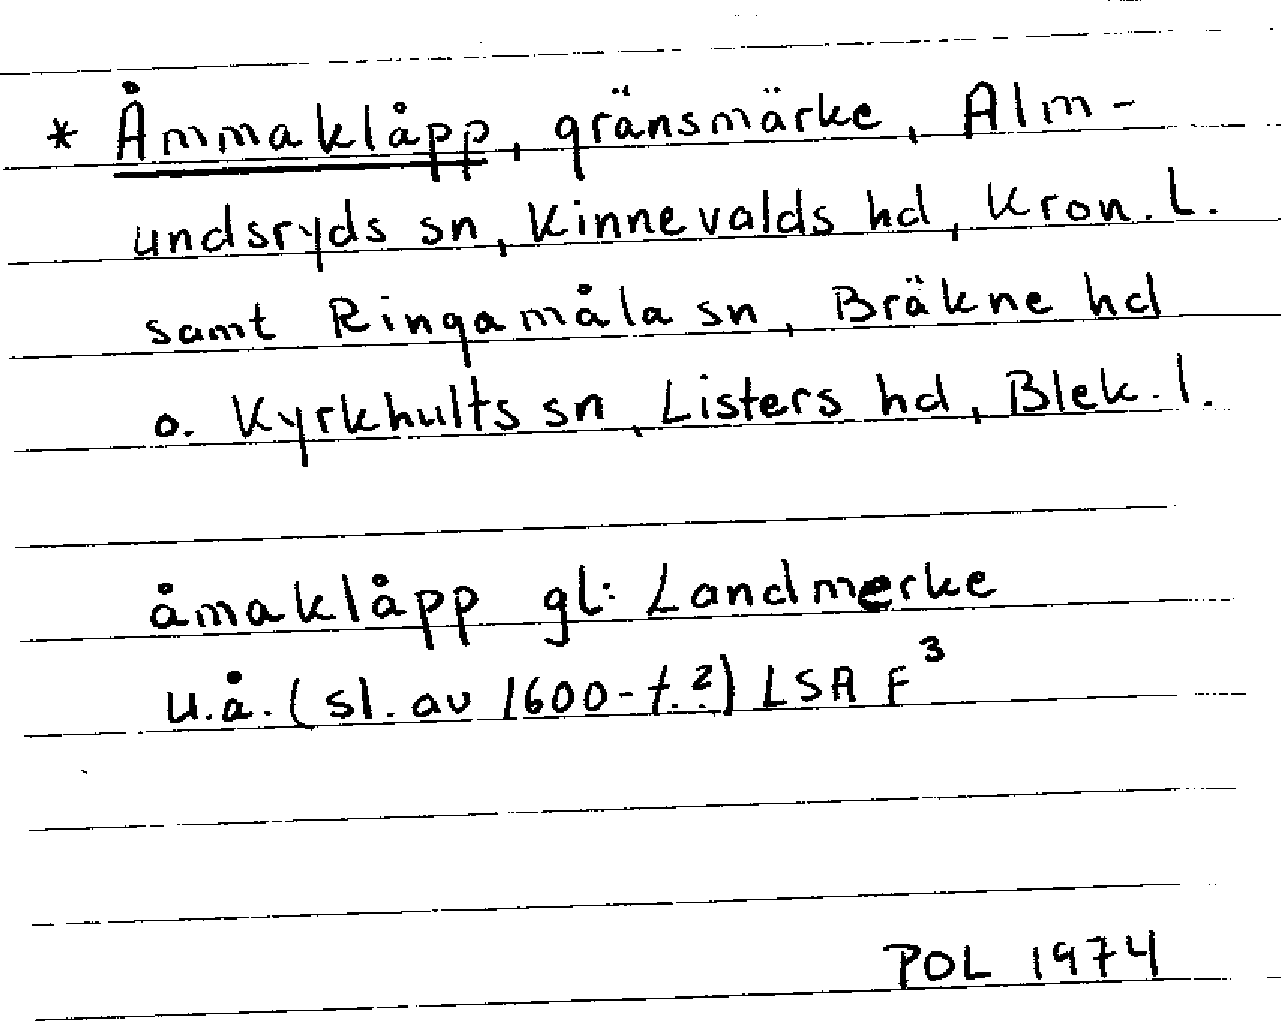 * Åmmaklåpp, gränsmärke, Alm-
undsryds sn, Kinnevalds hd, Kron. l.
samt Ringamåla sn, Bräkne hd
o. Kyrkhults sn, Listers hd, Blek. l.
åmaklåpp gl: Landmerke
u.å. (sl. av 1600-t.?) LSA F³
POL 1974